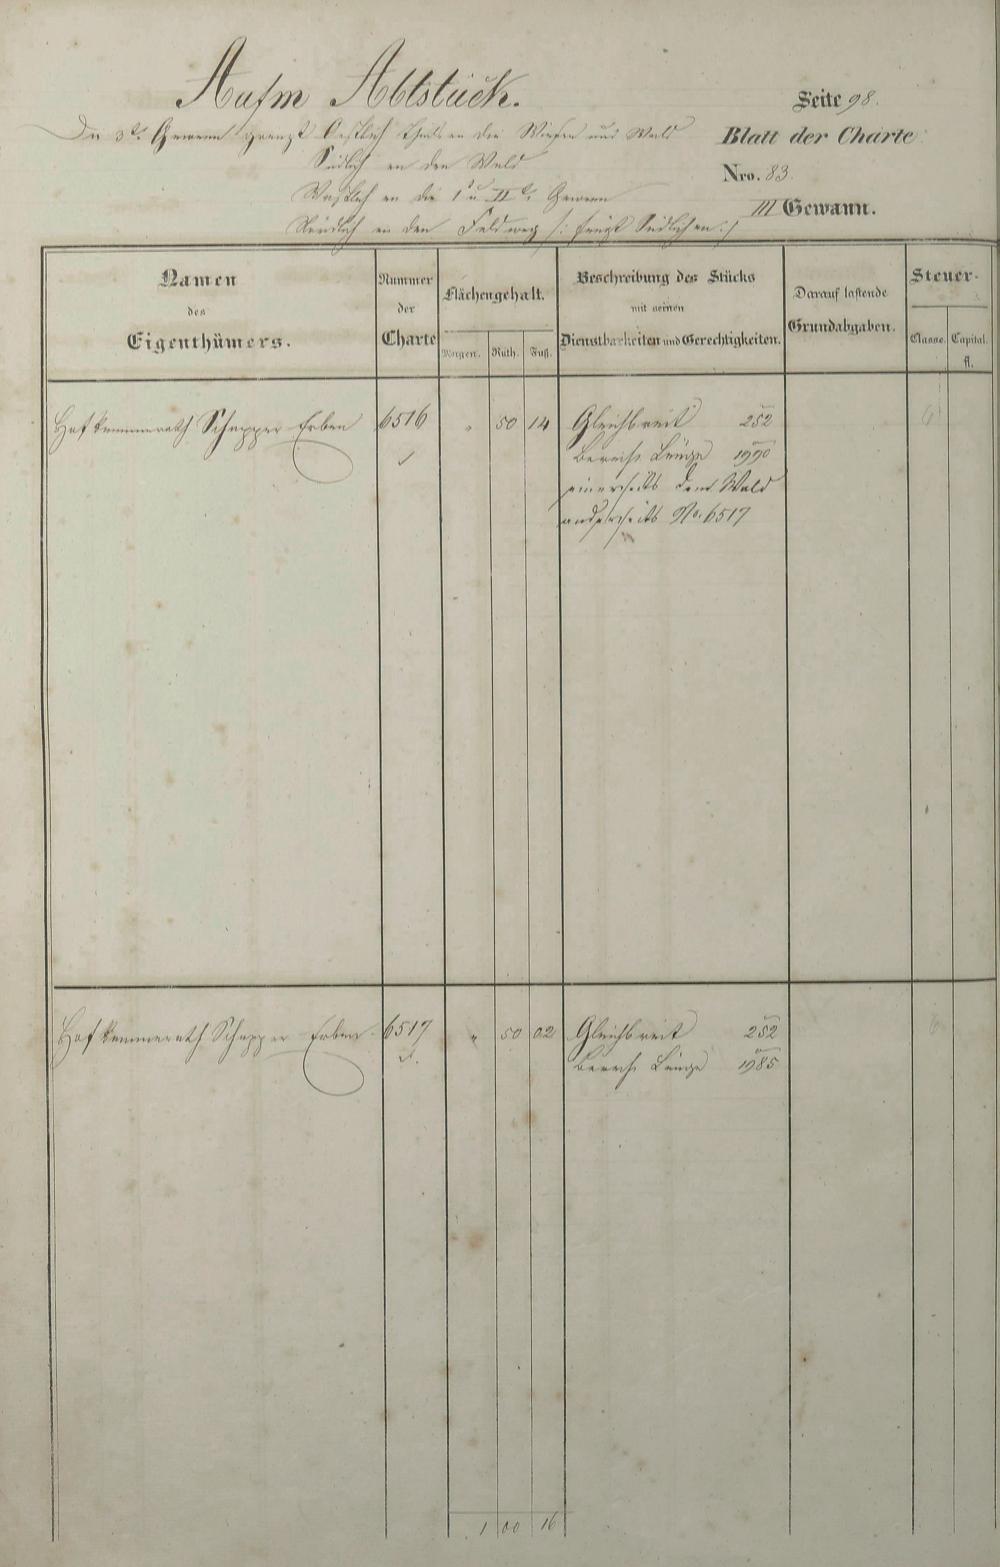 Aufm Abtstück.
Seite 98.
Die 3te Gewann grenzt Oestlich theils an die Wiesen und Wald
Blatt der Charte
Südlich an den Wald
Nro. 83.
Westlich an die I u II te Gewann
III Gewann.
Nördlich an den Feldweg /: fängt Südlich an :/
Namen
des
Eigenthümers.
Nummer
der
Charte
Flächengehalt.
Morgen. Ruth. Fuß.
Beschreibung des Stücks
mit seinen
Dienstbarkeiten und Gerechtigkeiten.
Darauf lastende
Grundabgaben.
Steuer-
Classe. Capital.
fl.
Hofkammerrath Schapper Erben 6516 " 50 14 Gleichbreit 252 6
Berechte Länge 1990
einerseits dem Wald
anderseits No. 6517
Hofkammerrath Schapper Erben 6517 " 50 02 Gleichbreit 252 6
Berechte Länge 1985
1 00 16